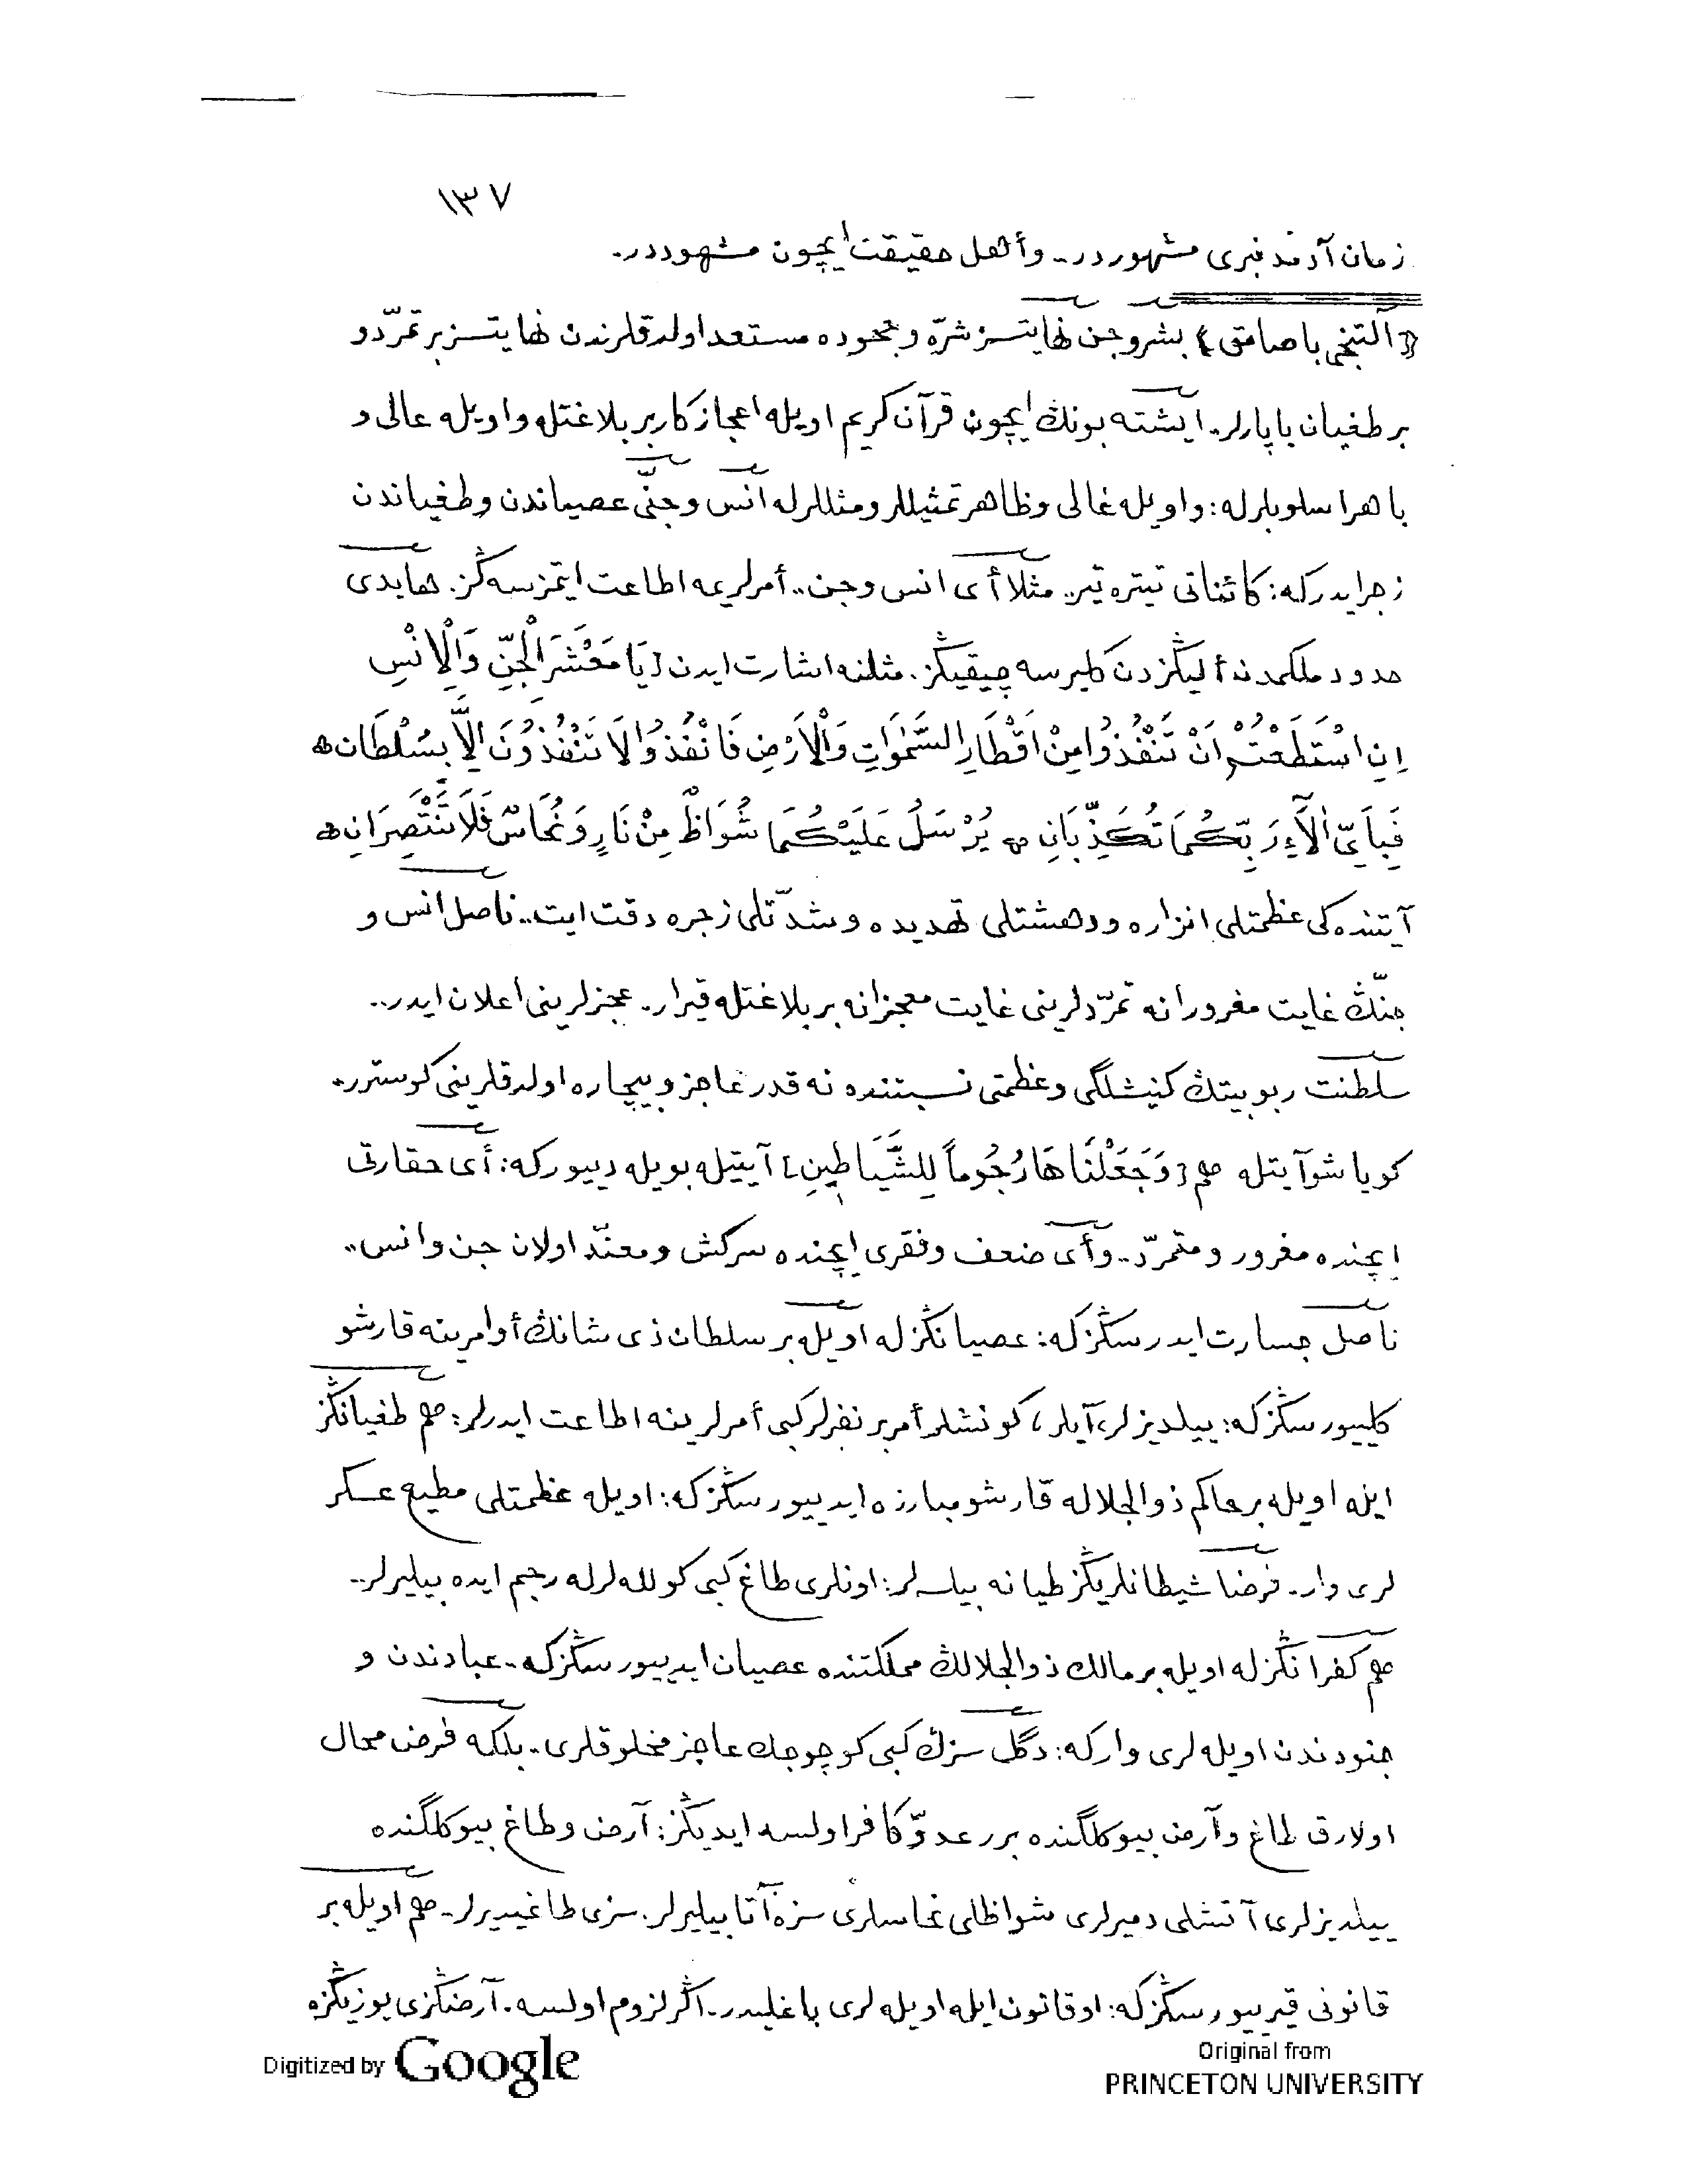 ١٣٧
زمان آدمدنبری مشهوردر.. وأهل حقيقت ایچون مشهوددر..
﴿آلتنجی باصامق﴾ بشر وجن نهایتسز شرّه وجحوده مستعد اولدقلرندن نهایتسز بر تمرّد و
بر طغیان یاپارلر.. ایشته بونك ایچون قرآن کریم اویله اعجازکار بر بلاغتله و اویله عالی و
باهر اسلوبلرله: و اویله غالی وظاهر تمثیللر و مثللرله انس وجنّی عصیاندن وطغیاندن
زجر ایدرکه: کائناتی تیتره تیر.. مثلا أی انس وجن.. أمرلریمه اطاعت ایتمزسه ڭز. هایدی
حدود ملکمدن ألیڭزدن کلیرسه چیقیڭز. مثلنه اشارت ایدن [يَا مَعْشَرَ الْجِنِّ وَالْاِنْسِ
اِنِ اسْتَطَعْتُمْ اَنْ تَنْفُذُوا مِنْ اَقْطَارِ السَّمٰوَاتِ وَالْاَرْضِ فَانْفُذُوا لَا تَنْفُذُونَ اِلَّا بِسُلْطَانٍ ۞
فَبِاَيِّ اٰلَاۤءِ رَبِّكُمَا تُكَذِّبَانِ ۞ يُرْسَلُ عَلَيْكُمَا شُوَاظٌ مِنْ نَارٍ وَنُحَاسٌ فَلَا تَنْتَصِرَانِ ۞
آیتنده کی عظمتلی انزاره ودهشتلی تهدیده وشدّتلی زجره دقت ایت.. ناصل انس و
جنّڭ غایت مغرورانه تمرّدلرینی غایت معجزانه بر بلاغتله قیرار.. عجزلرینی اعلان ایدر..
سلطنت ربوبیتڭ کنیشلگی وعظمتی نسبتنده نه قدر عاجز وبیچاره اولدقلرینی کوسترر..
کویا شو آیتله هم [وَجَعَلْنَاهَا رُجُوماً لِلشَّيَاطِينِ] آیتیله بویله دییورکه: أی حقارتی
ایچنده مغرور ومتمرّد.. وأی ضعف وفقری ایچنده سرکش ومعنّد اولان جن وانس..
ناصل جسارت ایدرسڭزکه: عصیانڭزله اویله بر سلطان ذی شانڭ أوامرینه قارشو
کلییورسڭزکه: ییلدیزلر، آیلر، کونشلر أمربر نفرلر کبی أمرلرینه اطاعت ایدرلر: هم طغیانڭز
ایله اویله بر حاکم ذوالجلاله قارشو مبارزه ایدییورسڭزکه: اویله عظمتلی مطیع عسکر
لری وار.. فرضا شیطانلریڭز طیانه بیلسه لر: اونلری طاغ کبی کولله لرله رجم ایده بیلیرلر..
هم کفرانڭزله اویله بر مالك ذوالجلالڭ مملکتنده عصیان ایدییورسڭزکه.. عبادندن و
جنودندن اویله لری وارکه: دگل سزڭ کبی کوچوجك عاجز مخلوقلری.. بلکه فرض محال
اولارق طاغ وآرض بیوکلگنده برر عدوّ کافر اولسه ایدیڭز: آرض وطاغ بیوکلگنده
ییلدیزلری آتشلی دمیرلری شواظلی نحاسلری سزه آتا بیلیرلر. سزی طاغیدیرلر.. هم اویله بر
قانونی قیرییورسڭزکه: او قانون ایله اویله لری باغلیدر.. اڭر لزوم اولسه.. آرضڭزی یوزیڭزه
Digitized by Google
Original from
PRINCETON UNIVERSITY